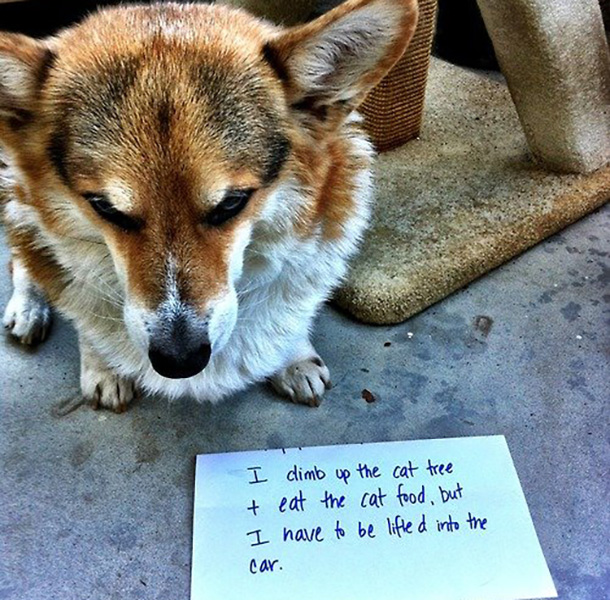 I climb up the cat tree
+ eat the cat food, but
I have to be lifted into the
car.